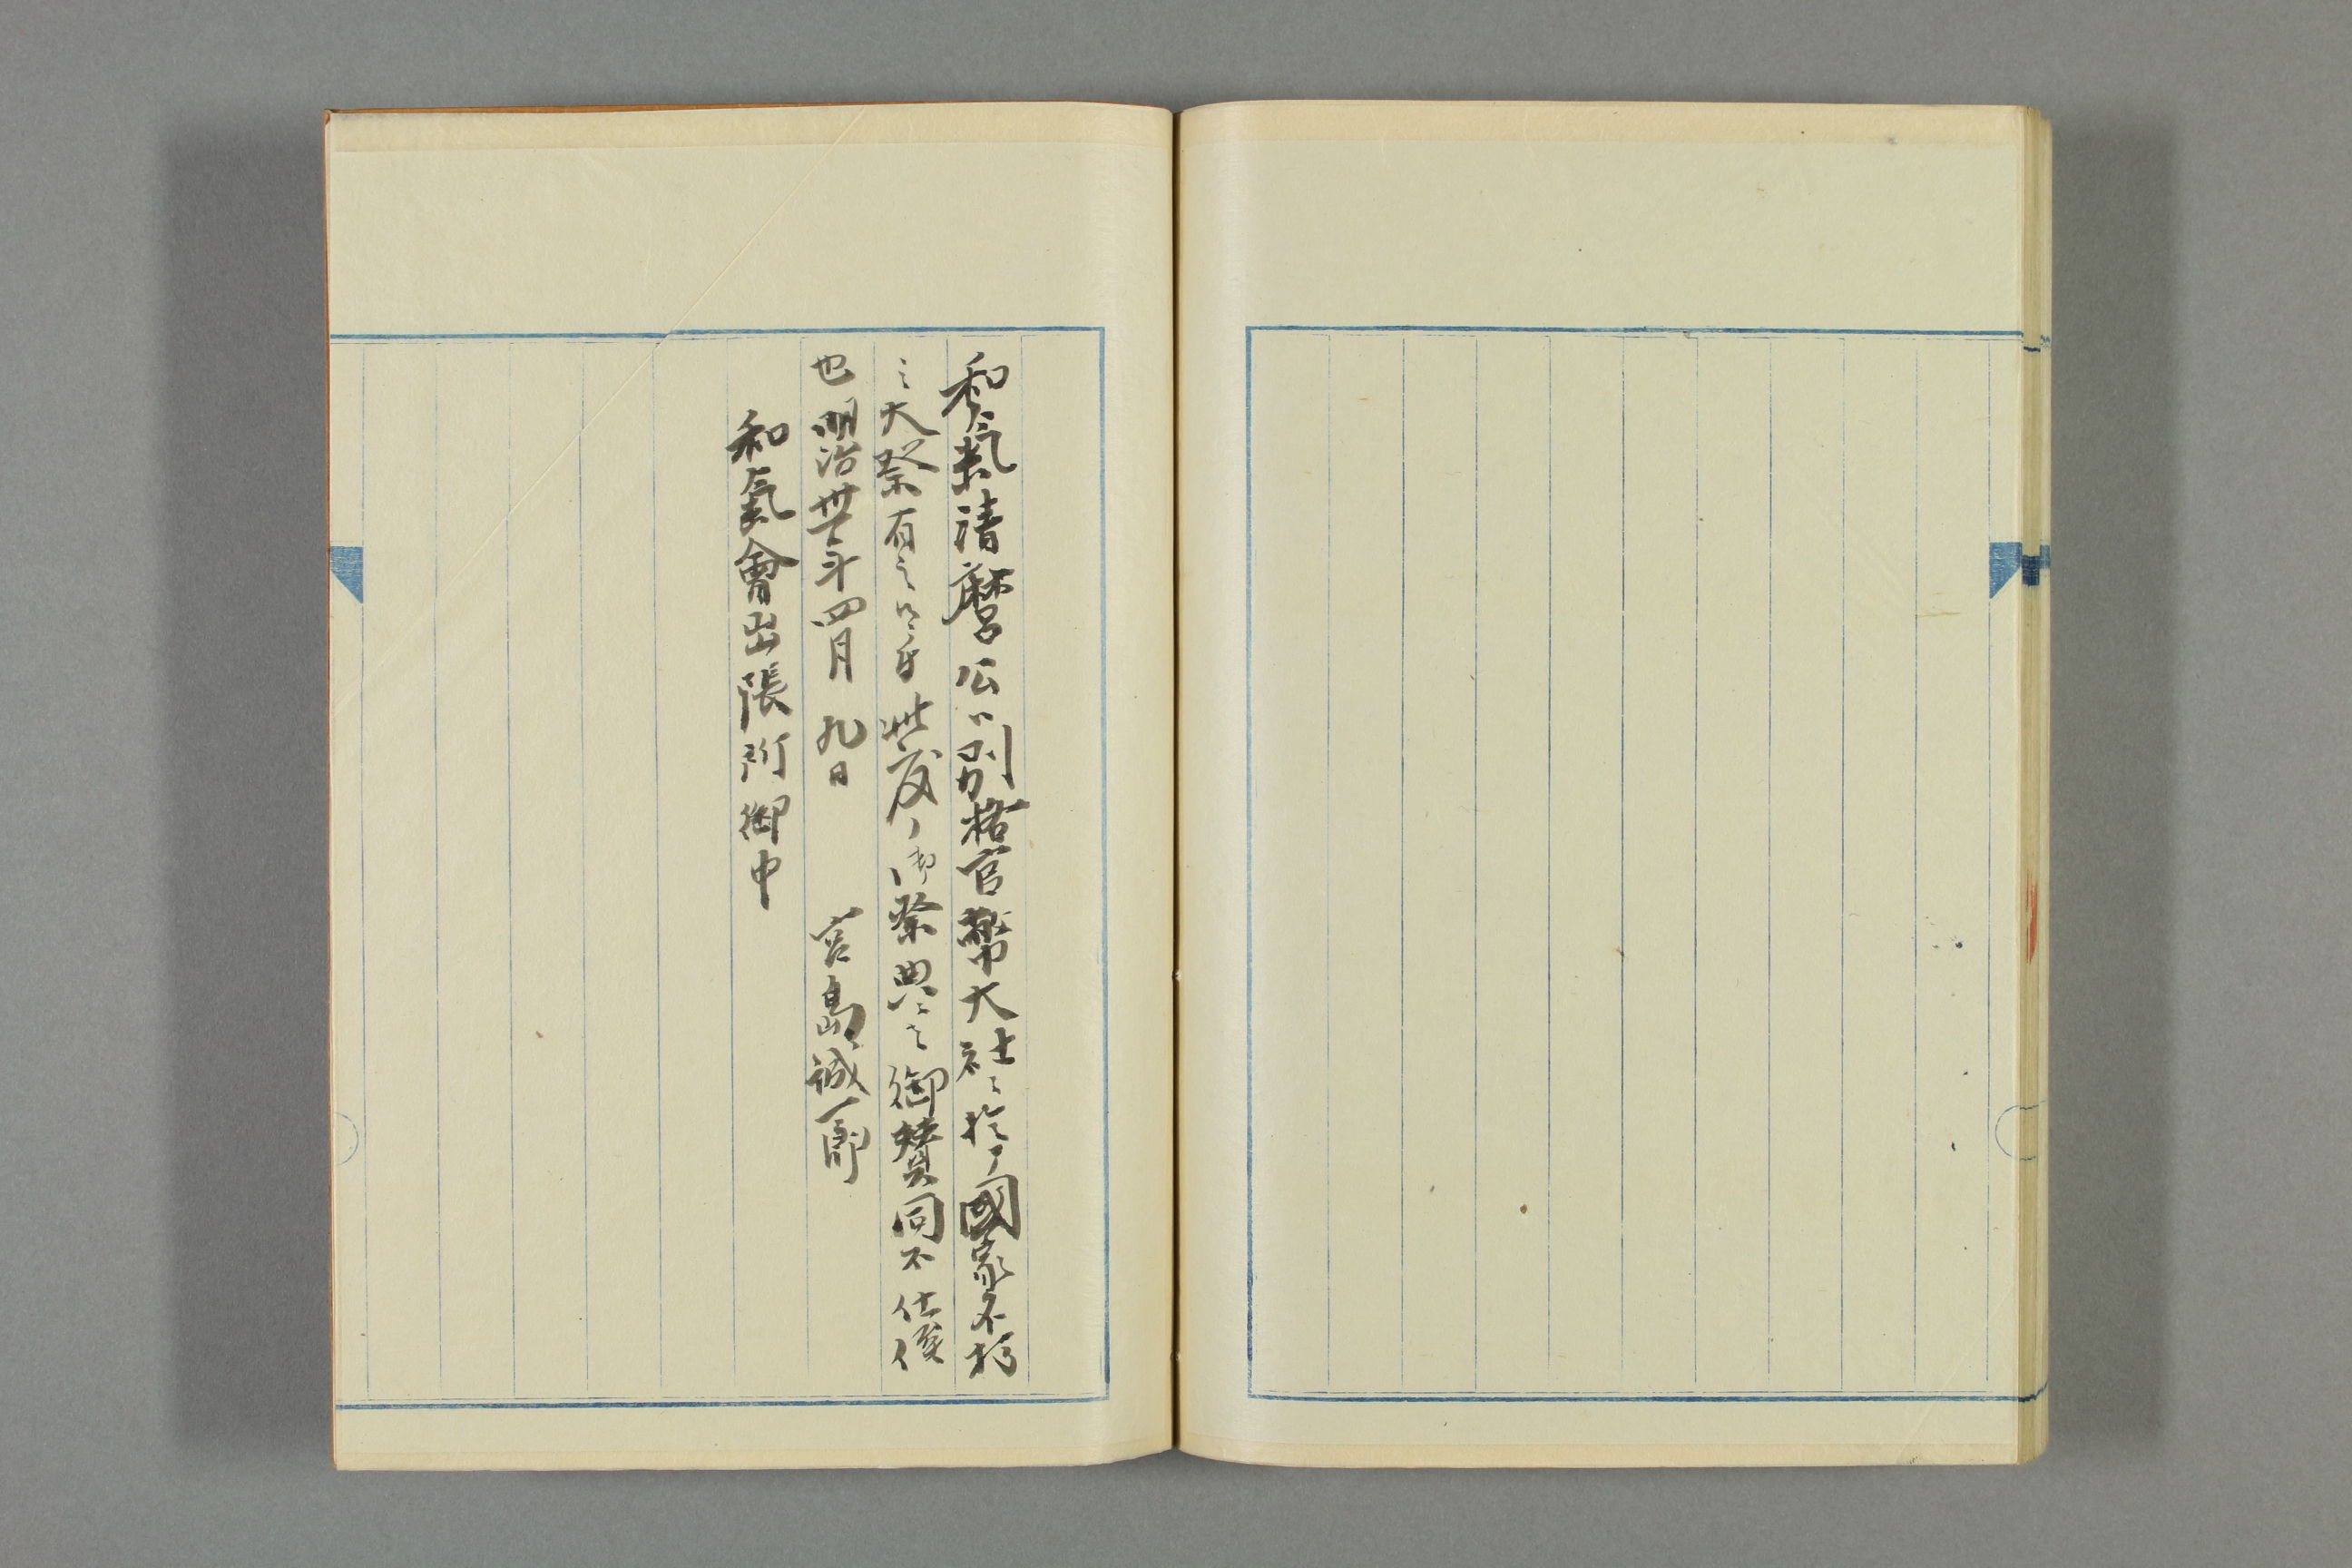 和氣清麿公ハ別格官幣大社ニ於テ國家不朽
之大祭有之候ニ付此度ノ御祭典ニ之御賛同不仕候
也明治卅一年四月九日 宮島誠一郎
和氣會出張所御中